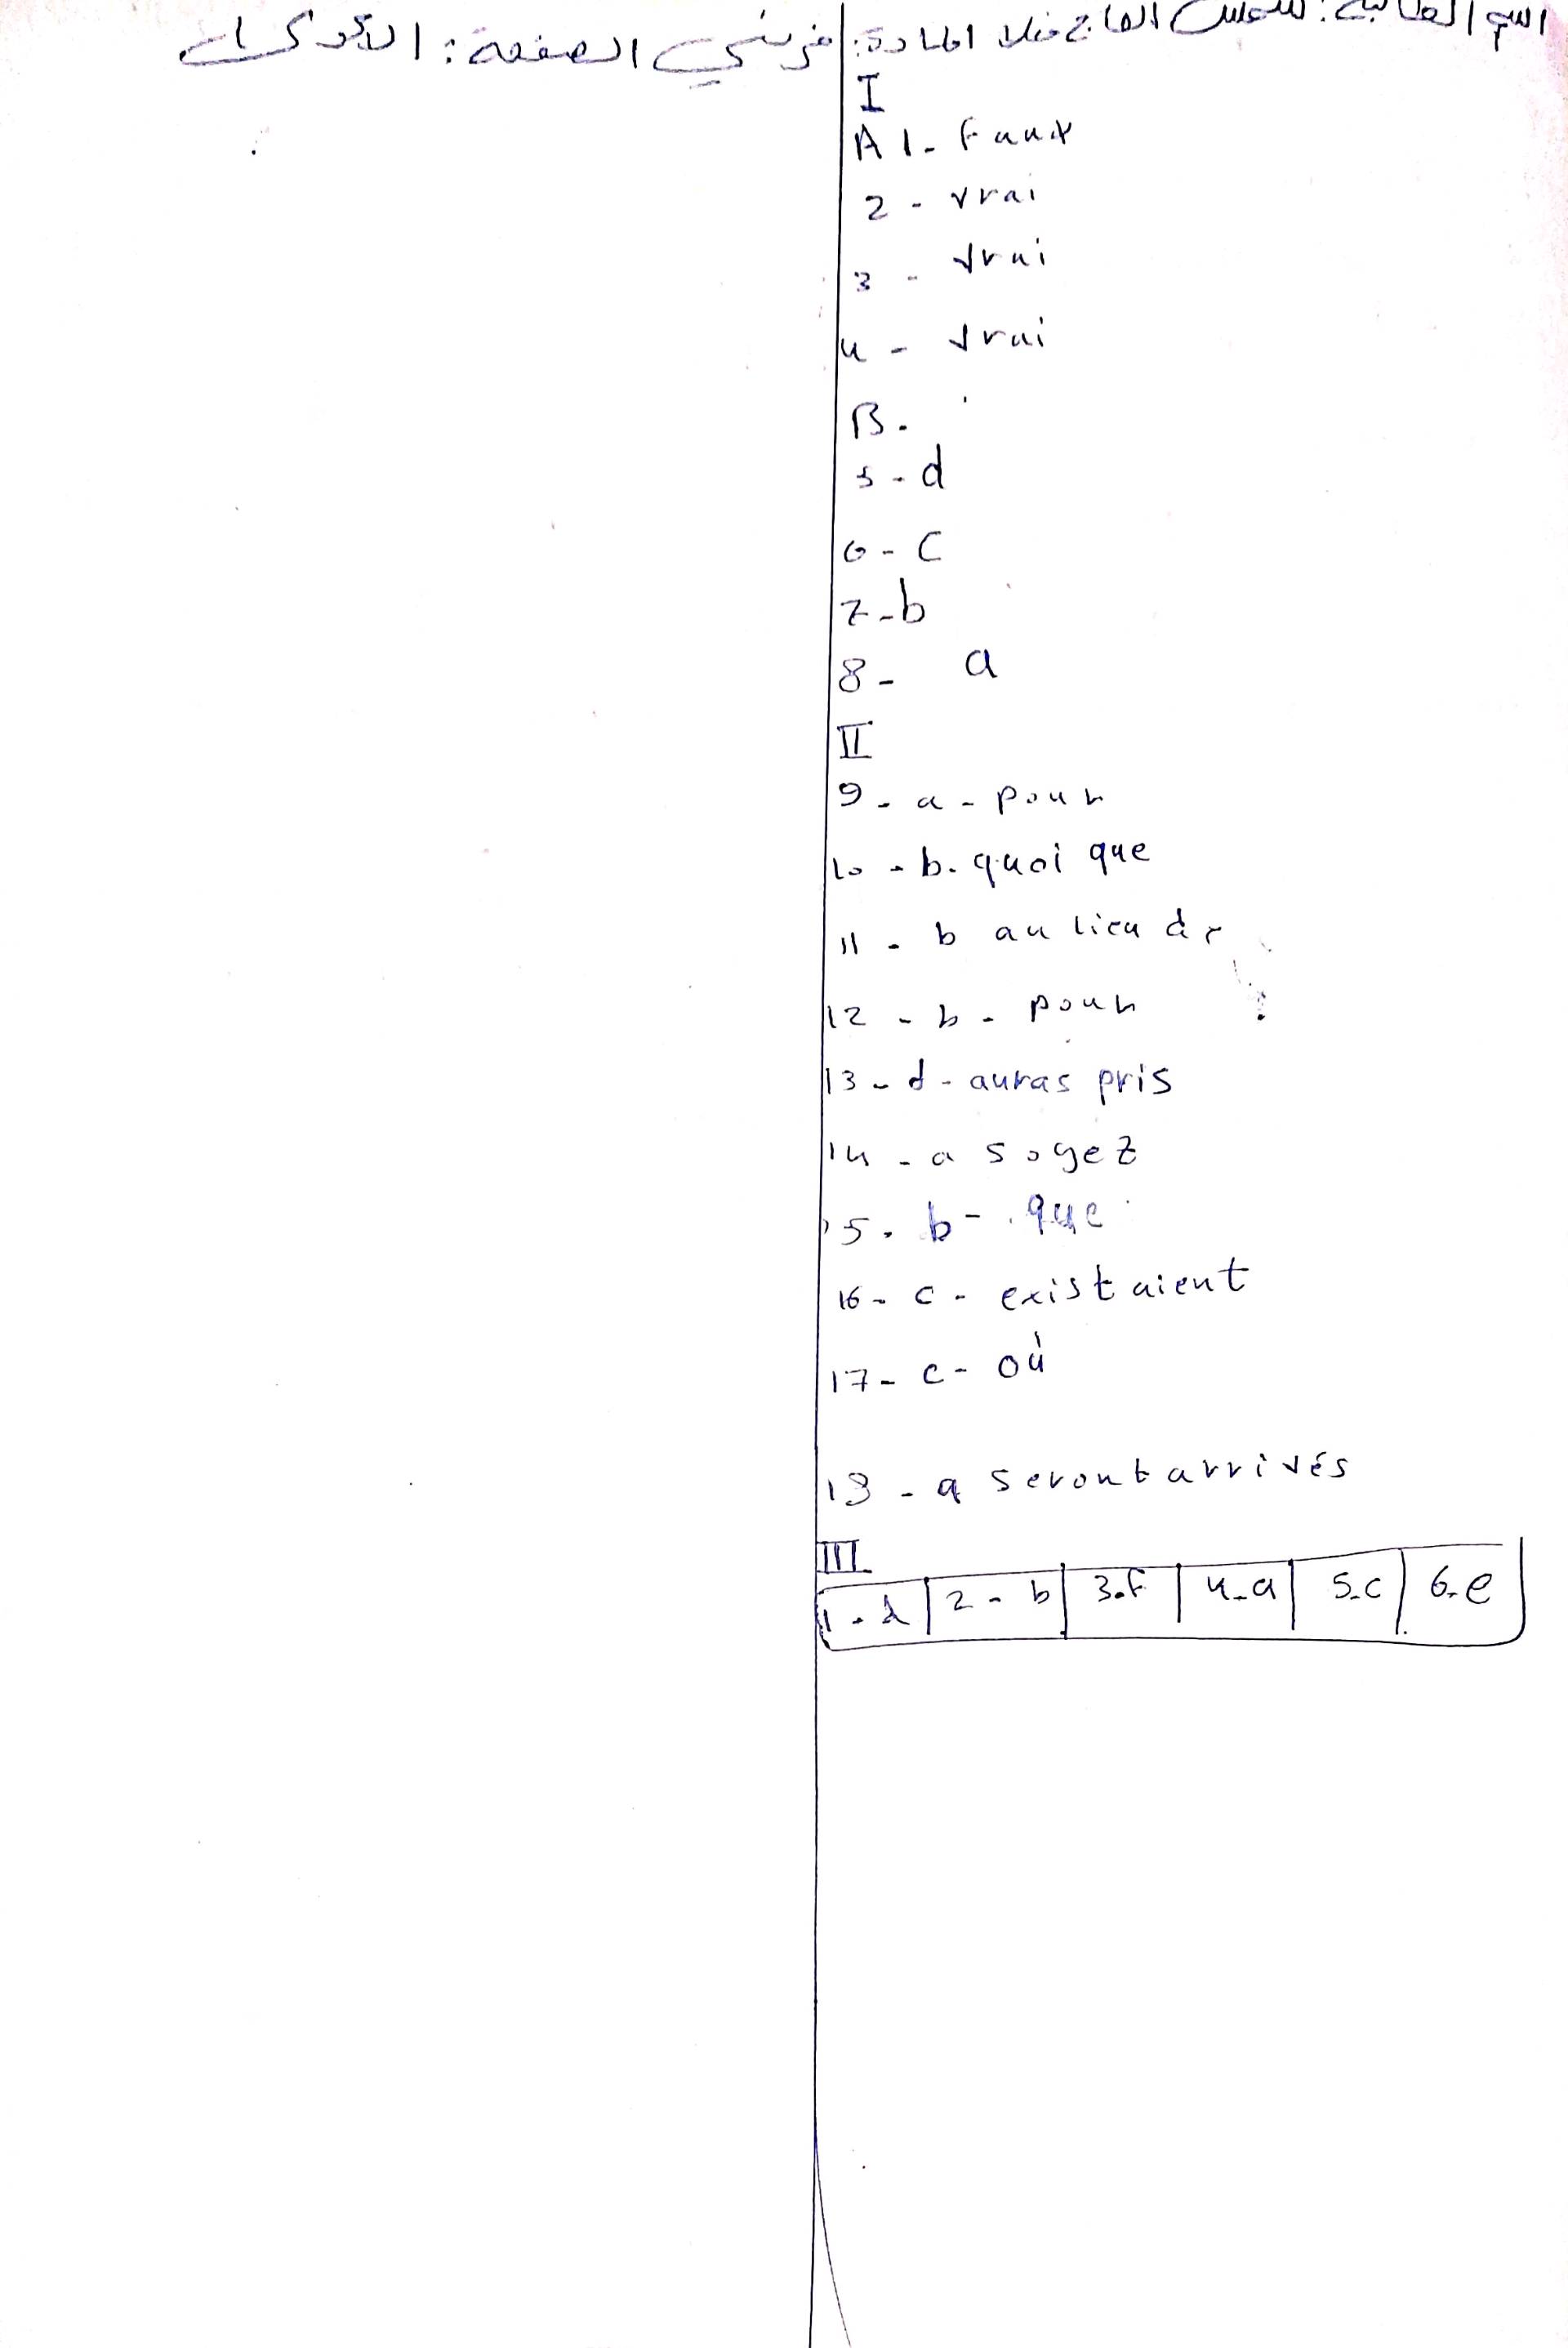 اسم الطالبة: شمس الحاج منلا المادة: فرنسي الصفحة: الأولى
I
A 1- Faux
2 - vrai
3 - vrai
4 - vrai
B.
5 - d
6 - c
7 - b
8 - a
II
9 - a - pour
10 - b. quoi que
11 - b au lieu de
12 - b - pour
13 - d - auras pris
14 - a soyez
15. b - que
16 - c - existaient
17 - c - où
18 - a seront arrivés
III
1 - d 2 - b 3.f 4-a 5-c 6-e